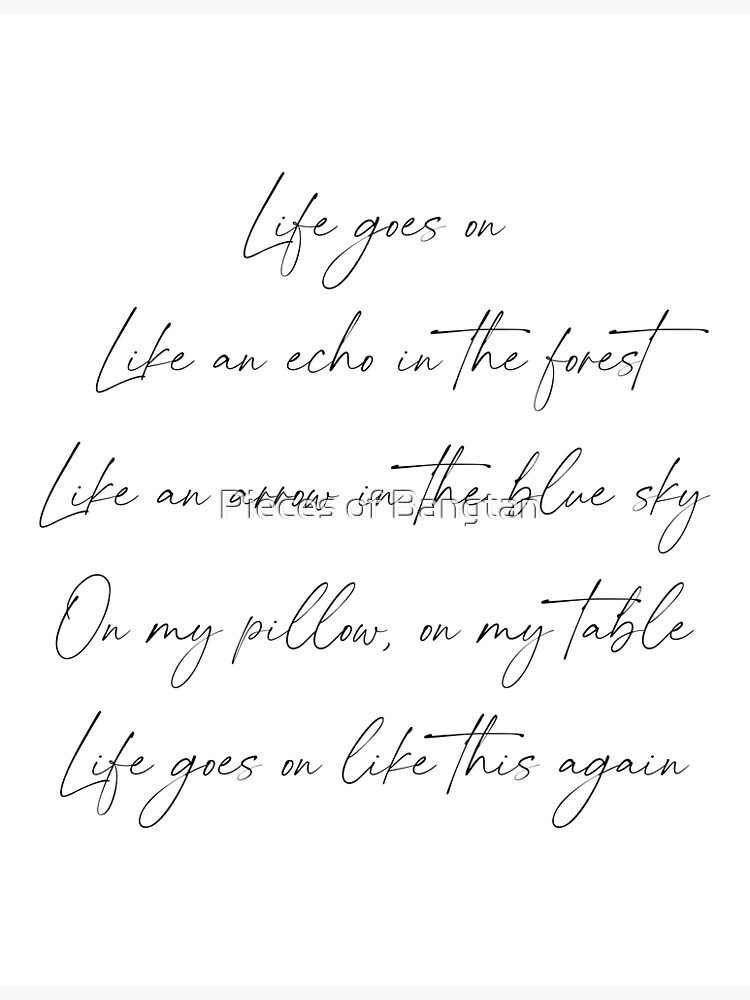 Life goes on
Like an echo in the forest
Like an arrow in the blue sky
Pieces of Bangtan
On my pillow, on my table
Life goes on like this again